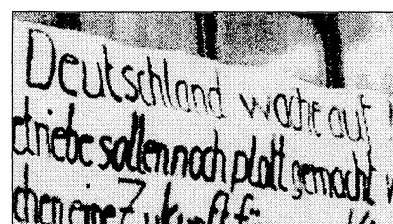 Deutschland wache auf
etriebe sollen noch platt gemacht w
chen eine Zukunft fü